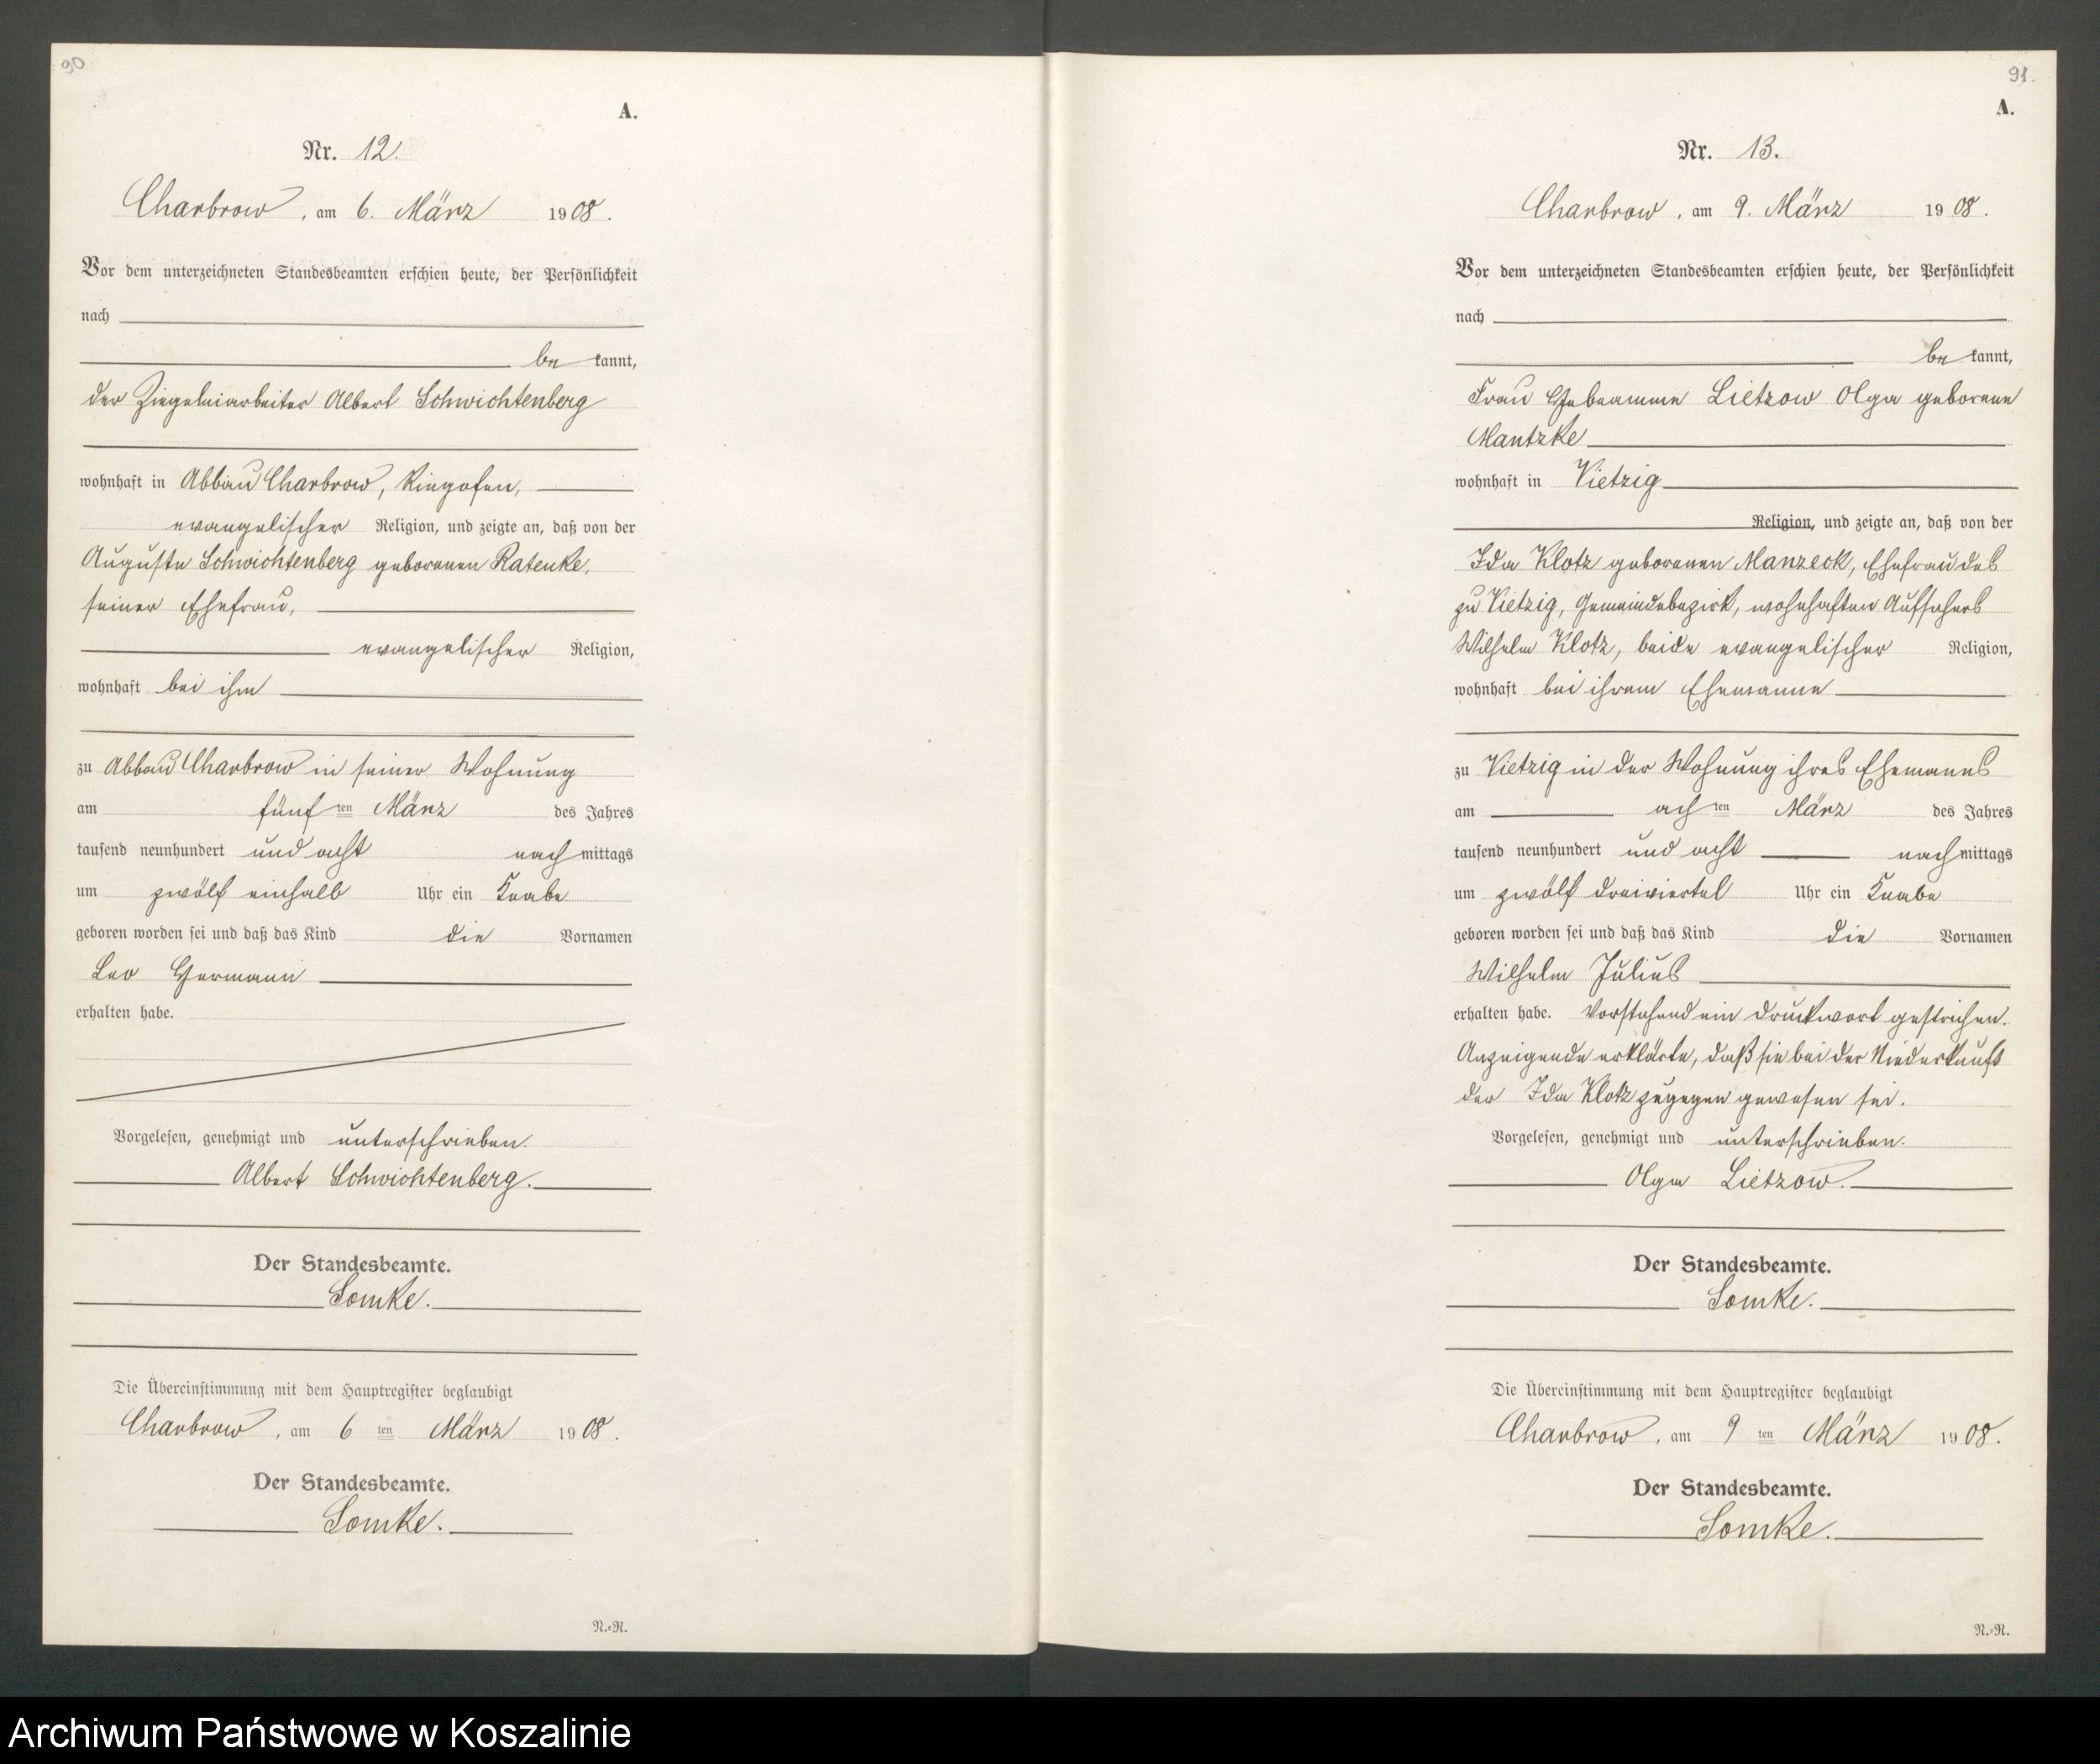 90
A.
Nr. 12.
Charbrow, am 6. März 1908.
Vor dem unterzeichneten Standesbeamten erschien heute, der Persönlichkeit
nach
be kannt,
der Ziegeleiarbeiter Albert Schwichtenberg
wohnhaft in Abbau Charbrow, Ringofen,
evangelischer Religion, und zeigte an, daß von der
Auguste Schwichtenberg geborenen Ratenke,
seiner Ehefrau,
evangelischer Religion,
wohnhaft bei ihm
zu Abbau Charbrow in seiner Wohnung
am fünf ten März des Jahres
tausend neunhundert und acht nach mittags
um zwölf einhalb Uhr ein Knabe
geboren worden sei und daß das Kind die Vornamen
Leo Hermann
erhalten habe.
Vorgelesen, genehmigt und unterschrieben.
Albert Schwichtenberg.
Der Standesbeamte.
Somke.
Die Übereinstimmung mit dem Hauptregister beglaubigt
Charbrow, am 6 ten März 1908.
Der Standesbeamte.
Somke.
N.=R.
91.
A.
Nr. 13.
Charbrow, am 9. März 1908.
Vor dem unterzeichneten Standesbeamten erschien heute, der Persönlichkeit
nach
be kannt,
Frau Hebeamme Lietzow Olga geborene
Mantzke
wohnhaft in Vietzig
Religion, und zeigte an, daß von der
Ida Klotz geborenen Manzeck, Ehefrau des
zu Vietzig, Gemeindebezirk, wohnhaften Aufsehers
Wilhelm Klotz, beide evangelischer Religion,
wohnhaft bei ihrem Ehemanne
zu Vietzig in der Wohnung ihres Ehemanns
am ach ten März des Jahres
tausend neunhundert und acht nach mittags
um zwölf dreiviertel Uhr ein Knabe
geboren worden sei und daß das Kind die Vornamen
Wilhelm Julius
erhalten habe. Vorstehend ein Druckwort gestrichen.
Anzeigende erklärte, daß sie bei der Niederkunft
der Ida Klotz zugegen gewesen sei.
Vorgelesen, genehmigt und unterschrieben.
Olga Lietzow.
Der Standesbeamte.
Somke.
Die Übereinstimmung mit dem Hauptregister beglaubigt
Charbrow, am 9 ten März 1908.
Der Standesbeamte.
Somke.
N.=R.
Archiwum Państwowe w Koszalinie